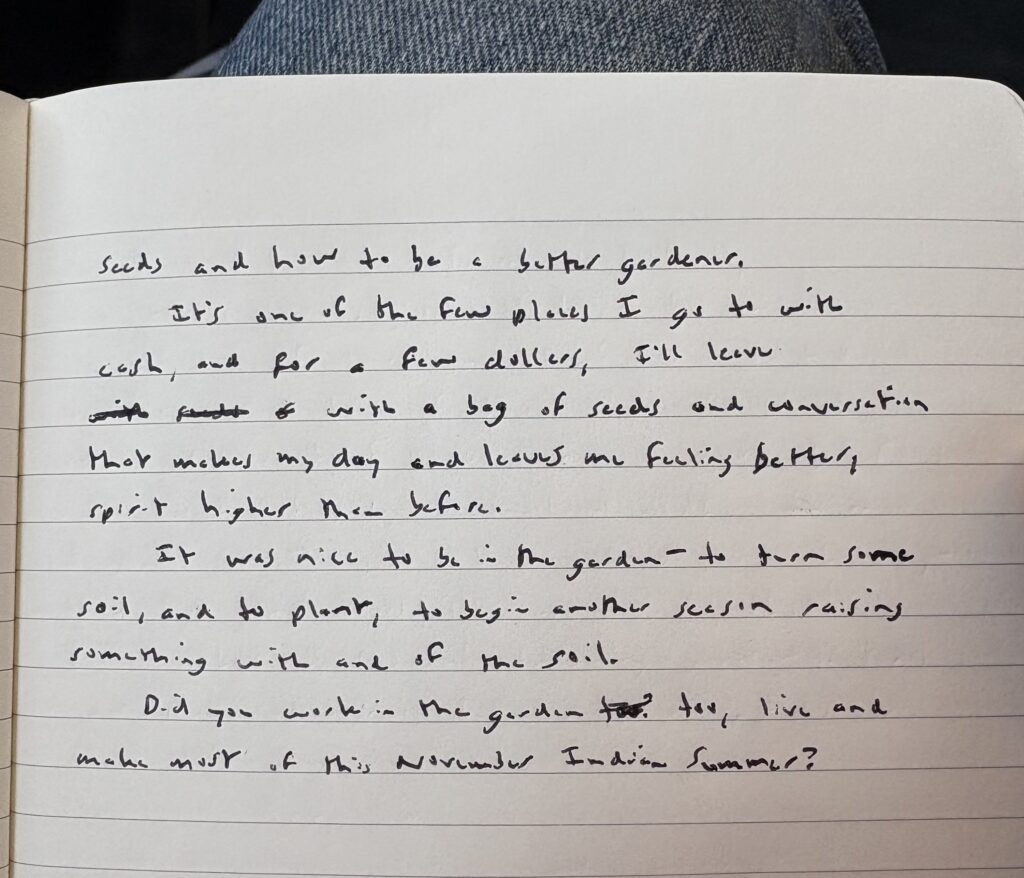 seeds and how to be a better gardener.
It's one of the few places I go to with
cash, and for a few dollars, I'll leave
with seeds & with a bag of seeds and conversation
that makes my day and leaves me feeling better,
spirit higher than before.
It was nice to be in the garden – to turn some
soil, and to plant, to begin another season raising
something with and of the soil.
Did you work in the garden too? too, live and
make most of this November Indian Summer?